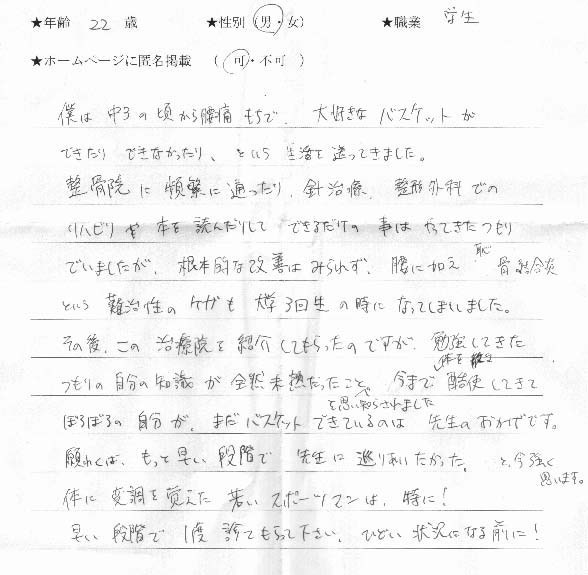 ★年齢 22 歳 ★性別（男・女） ★職業 学生
★ホームページに匿名掲載 （ 可・不可 ）
僕は 中3の頃から腰痛もちで、 大好きな バスケットが
できたり できなかったり、という 生活を送ってきました。
整骨院に 頻繁に通ったり、針治療、整形外科での
リハビリや 本を 読んだりして できるだけの 事は やってきたつもり
でいましたが、 根本的な改善はみられず、 腰に加え 恥骨結合炎
という 難治性のケガも 大学3回生の時に なってしまいました。
その後、この 治療院を紹介してもらったのですが、勉強してきた
つもりの自分の知識が 全然未熟だったこと、今まで 体を酷使してきて
と思い知らされました
ぼろぼろの自分が、まだバスケットできているのは 先生のおかげです。
願わくば、もっと早い段階で 先生に巡りあいたかった、 と、今強く
思います。
体に変調を覚えた 若いスポーツマンは、特に！
早い段階で 1度 診てもらって下さい、ひどい状況になる前に！